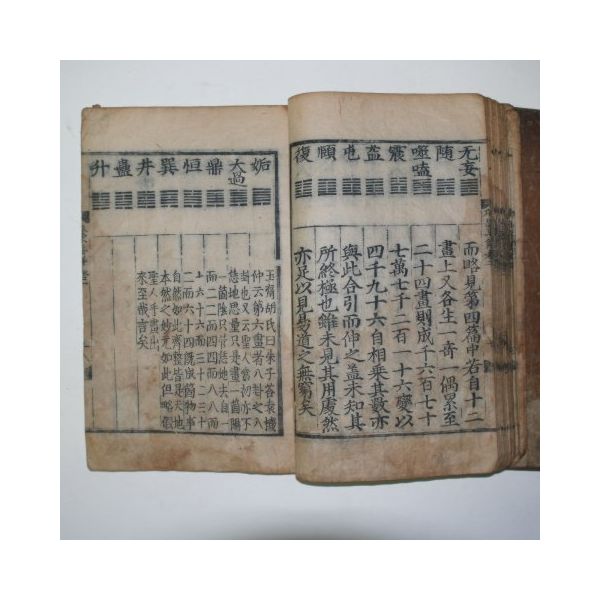 无妄
隨
噬嗑
震
益
屯
頤
復
而略見第四篇中若自十二
畫上又各生一奇一偶累至
二十四畫則成千六百七十
七萬七千二百一十六變以
四千九十六自相乘其數亦
與此合引而伸之盖未知其
所終極也雖未見其用處然
亦足以見易道之無窮矣
姤
大過
鼎
恒
巽
井
蠱
升
玉齋胡氏曰朱子荅袁樞
仲云第六畫者八卦之八
卦也又云聖人當初亦不
恁地思量只是畫一箇陽
一箇陰只管恁地去自一
而二二而四四而八八而
十六十六而三十二三十
二而六十四旣成箇物事
自然如此齊整皆是天地
本然之妙元如此但略假
聖人手畫出
來至哉言矣